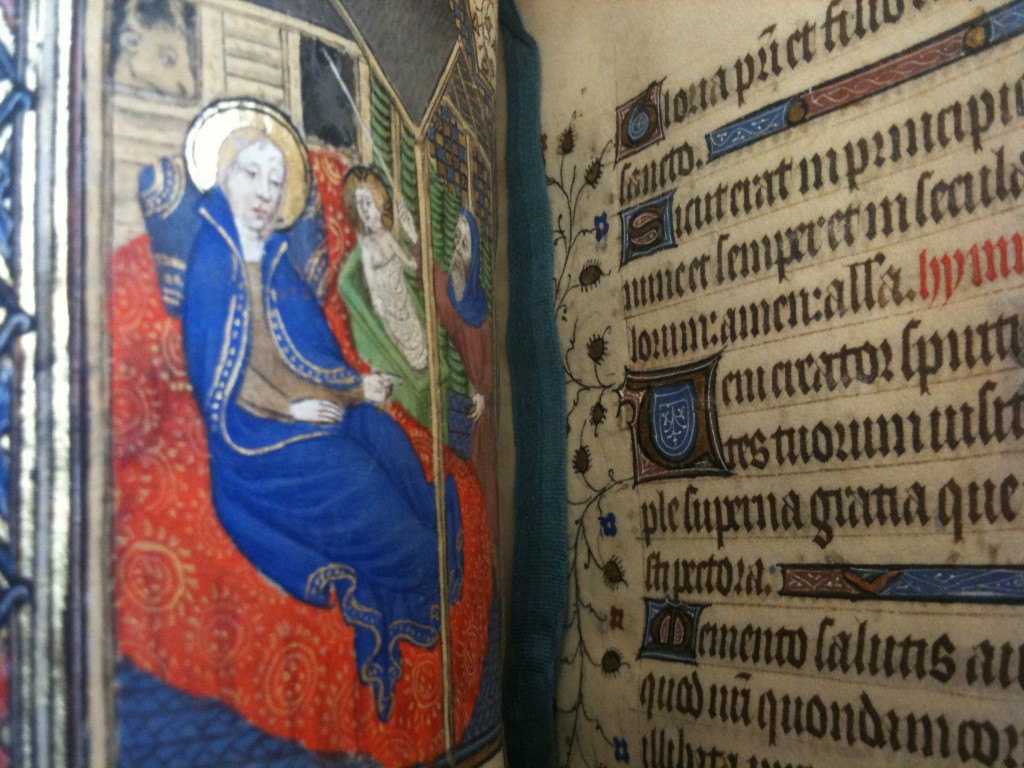 Gloria pri et filio
sancto.
Sicut erat in principio
nunc et semper et in secula
lorum: amen: alla. hymn
Veni creator spiritu
tes tuorum visit
ple superna gratia que
sti pectora.
Memento salutis au
quod nri quondam cor
illibata